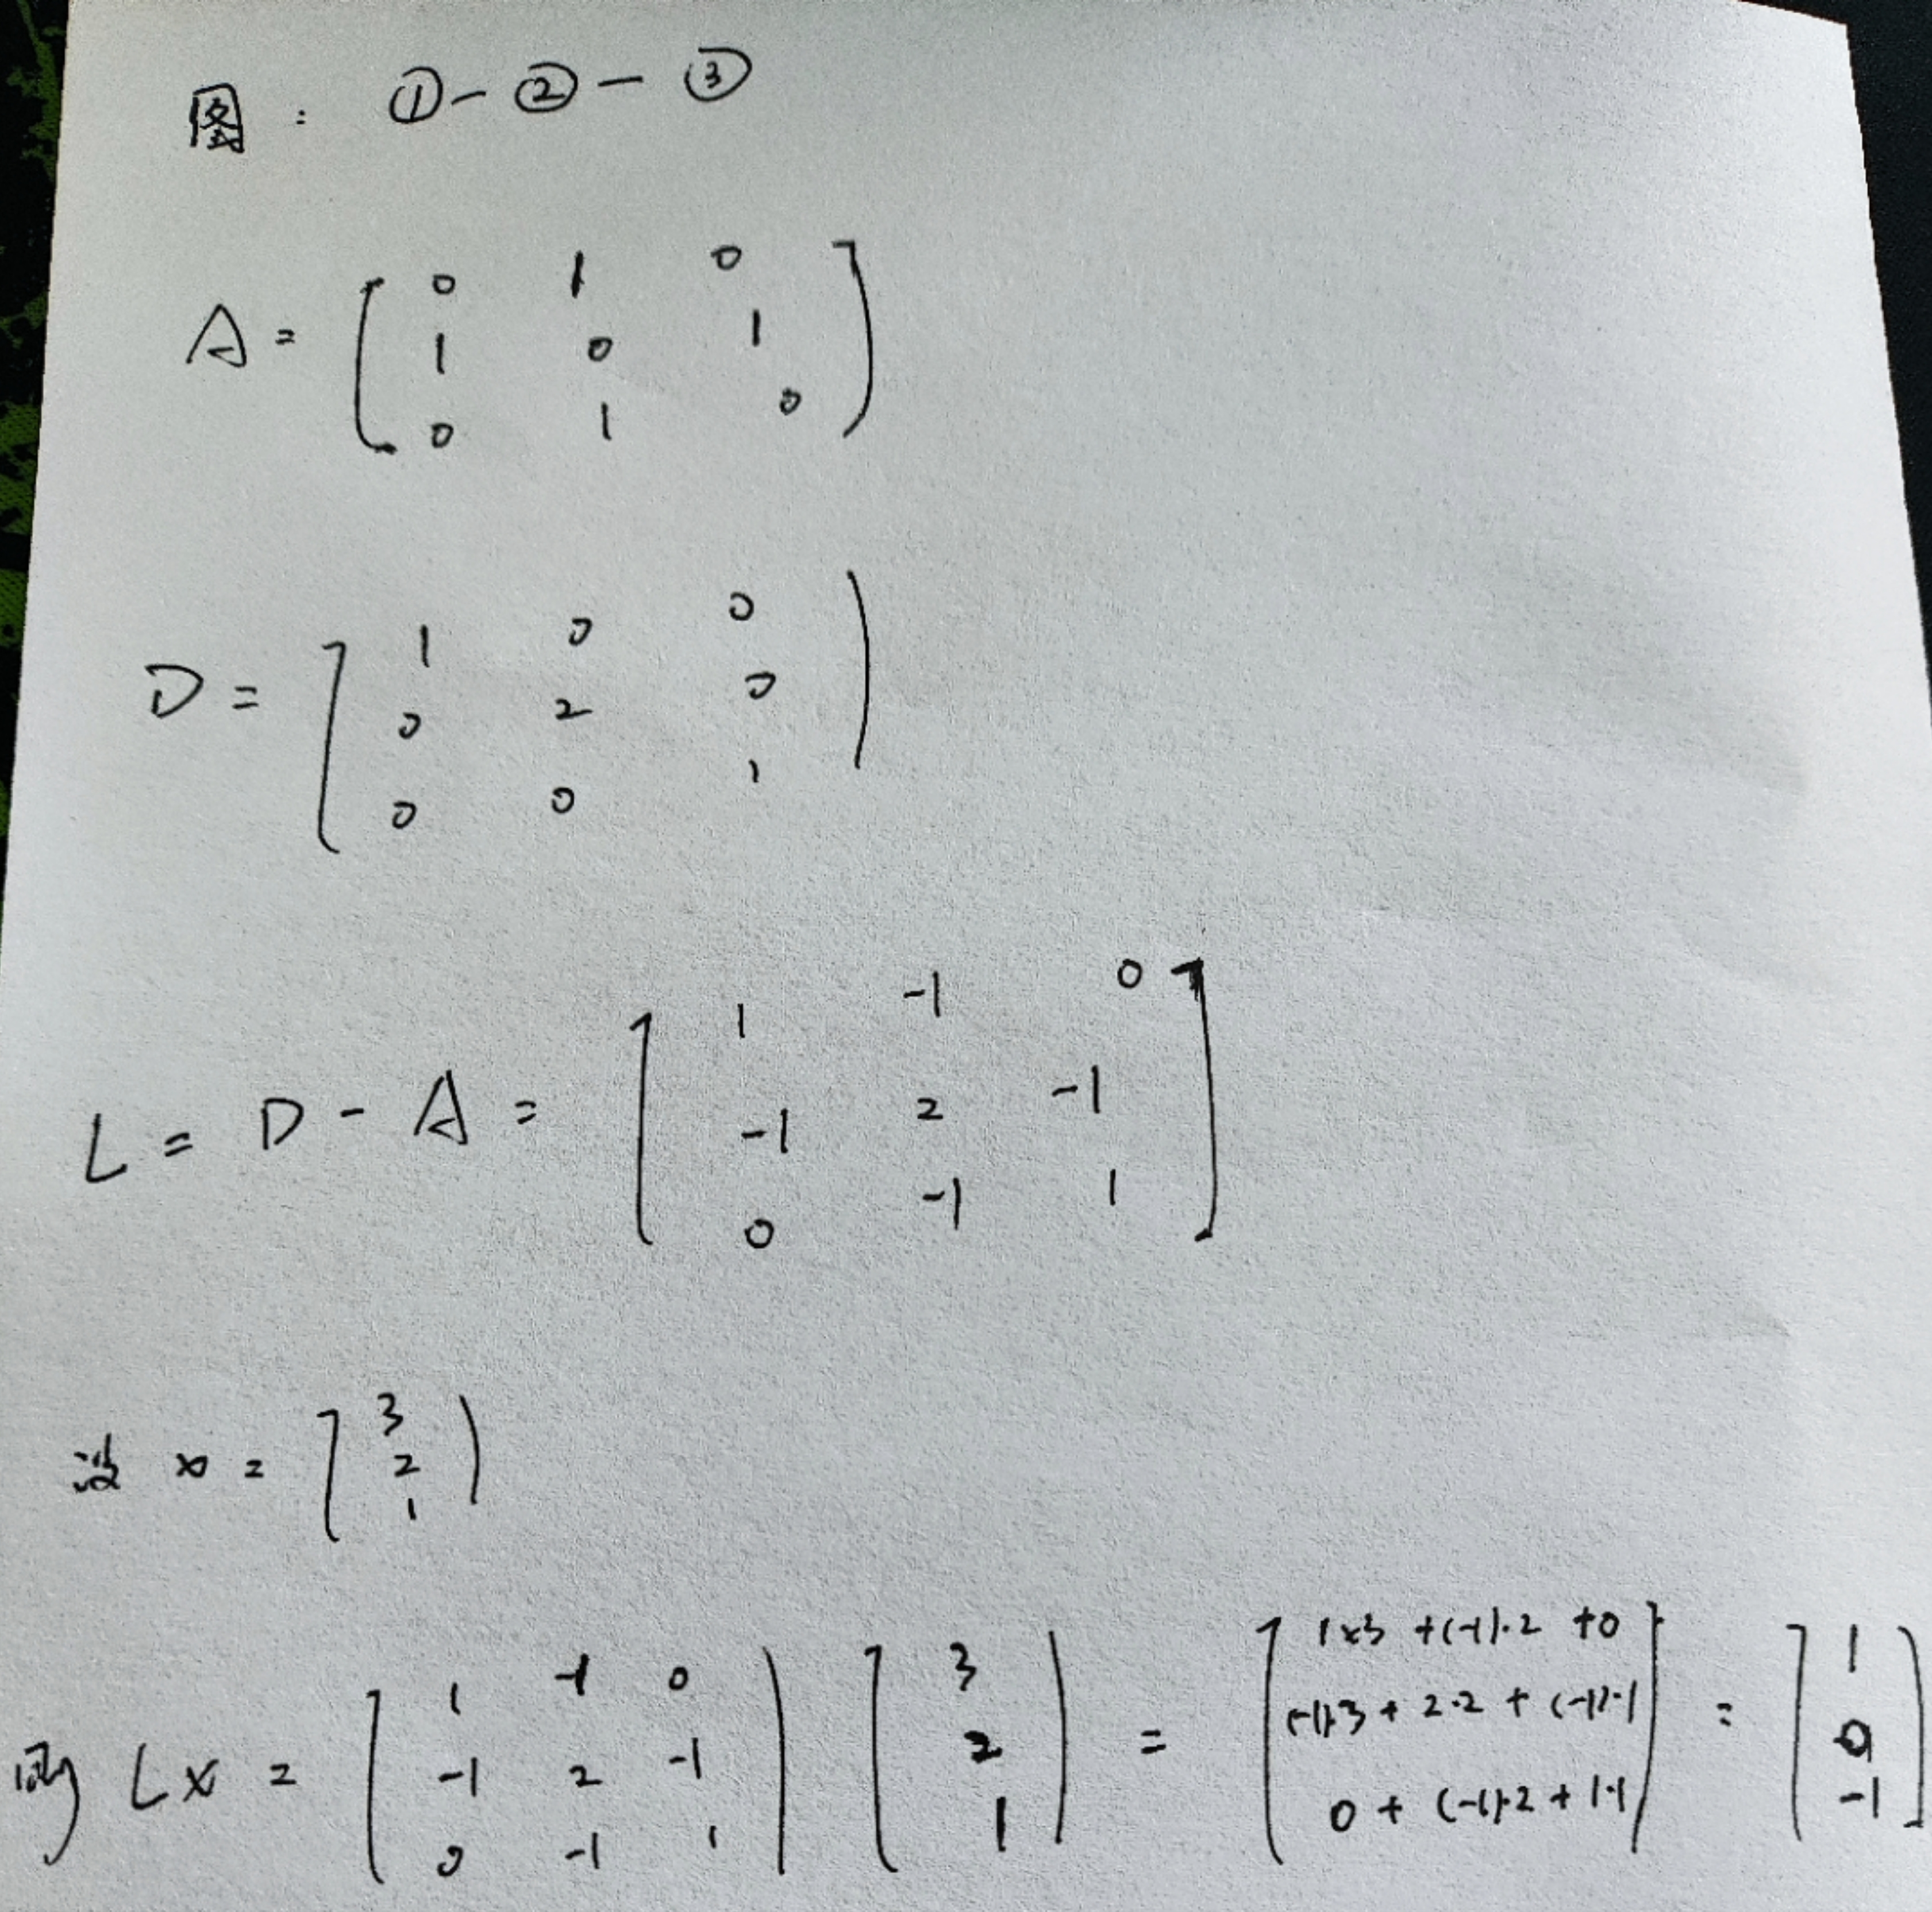 图: ①-②-③
A= [ 0 1 0
1 0 1
0 1 0 ]
D= [ 1 0 0
0 2 0
0 0 1 ]
L = D - A = [ 1 -1 0
-1 2 -1
0 -1 1 ]
设 x = [ 3
2
1 ]
则 Lx = [ 1 -1 0 ] [ 3 ] = [ 1×3 +(-1)·2 +0 ] = [ 1 ]
[ -1 2 -1 ] [ 2 ] [ (-1)·3 + 2·2 + (-1)·1 ] [ 0 ]
[ 0 -1 1 ] [ 1 ] [ 0 + (-1)·2 + 1·1 ] [ -1 ]